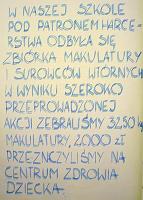 W NASZEJ SZKOLE
POD PATRONEM HARCE-
RSTWA ODBYŁA SIĘ
ZBIÓRKA MAKULATURY
I SUROWCÓW WTÓRNYCH
W WYNIKU SZEROKO
PRZEPROWADZONEJ
AKCJI ZEBRALIŚMY 3250 kg
MAKULATURY, 2000 zł
PRZEZNCZYLIŚMY NA
CENTRUM ZDROWIA
DZIECKA.